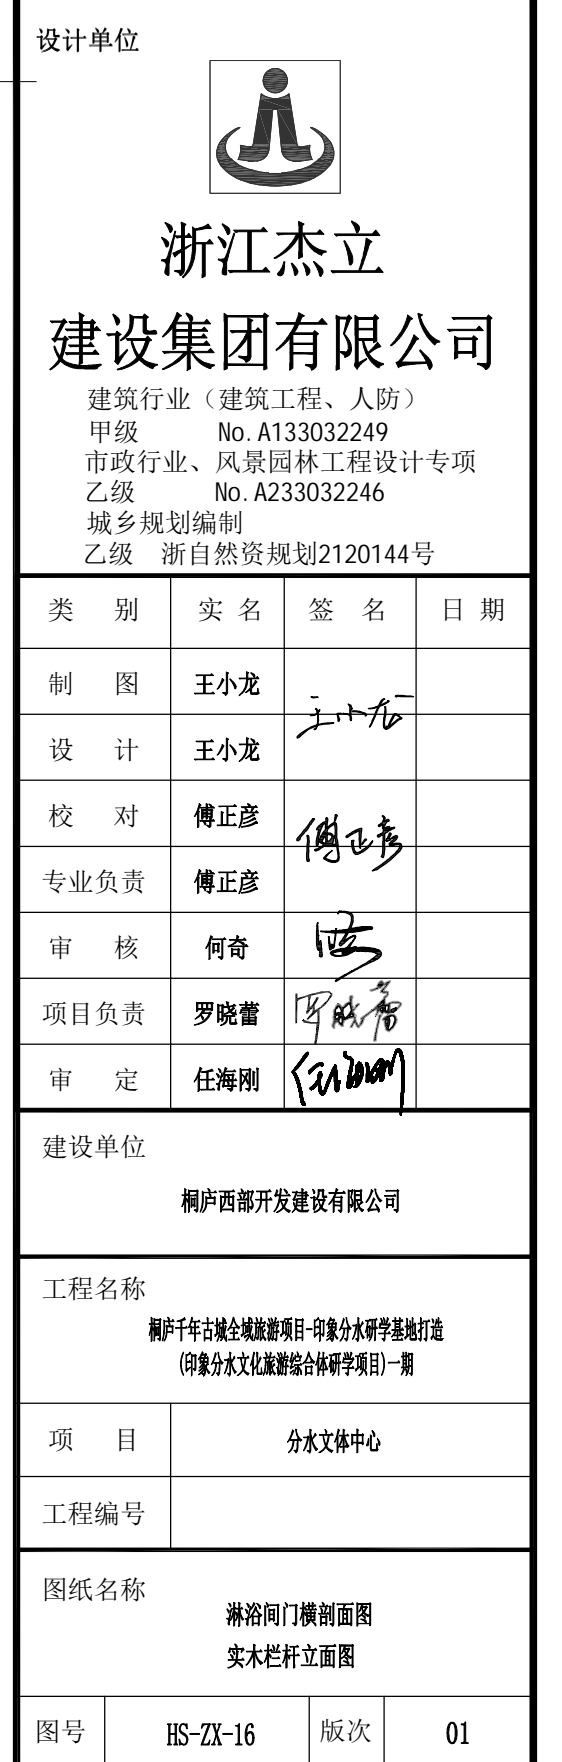 设计单位
浙江杰立
建设集团有限公司
建筑行业（建筑工程、人防）
甲级 No.A133032249
市政行业、风景园林工程设计专项
乙级 No.A233032246
城乡规划编制
乙级 浙自然资规划2120144号
类 别 实 名 签 名 日 期
制 图 王小龙
王小龙
设 计 王小龙
校 对 傅正彦
傅正彦
专业负责 傅正彦
审 核 何奇
项目负责 罗晓蕾 罗晓蕾
审 定 任海刚 任海刚
建设单位
桐庐西部开发建设有限公司
工程名称
桐庐千年古城全域旅游项目-印象分水研学基地打造
(印象分水文化旅游综合体研学项目)一期
项 目 分水文体中心
工程编号
图纸名称
淋浴间门横剖面图
实木栏杆立面图
图号 HS-ZX-16 版次 01